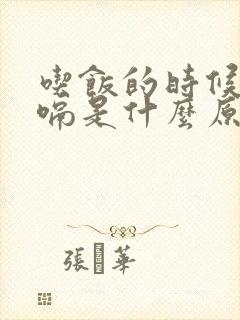 喫飯的時候
嗝是什麼原
張華